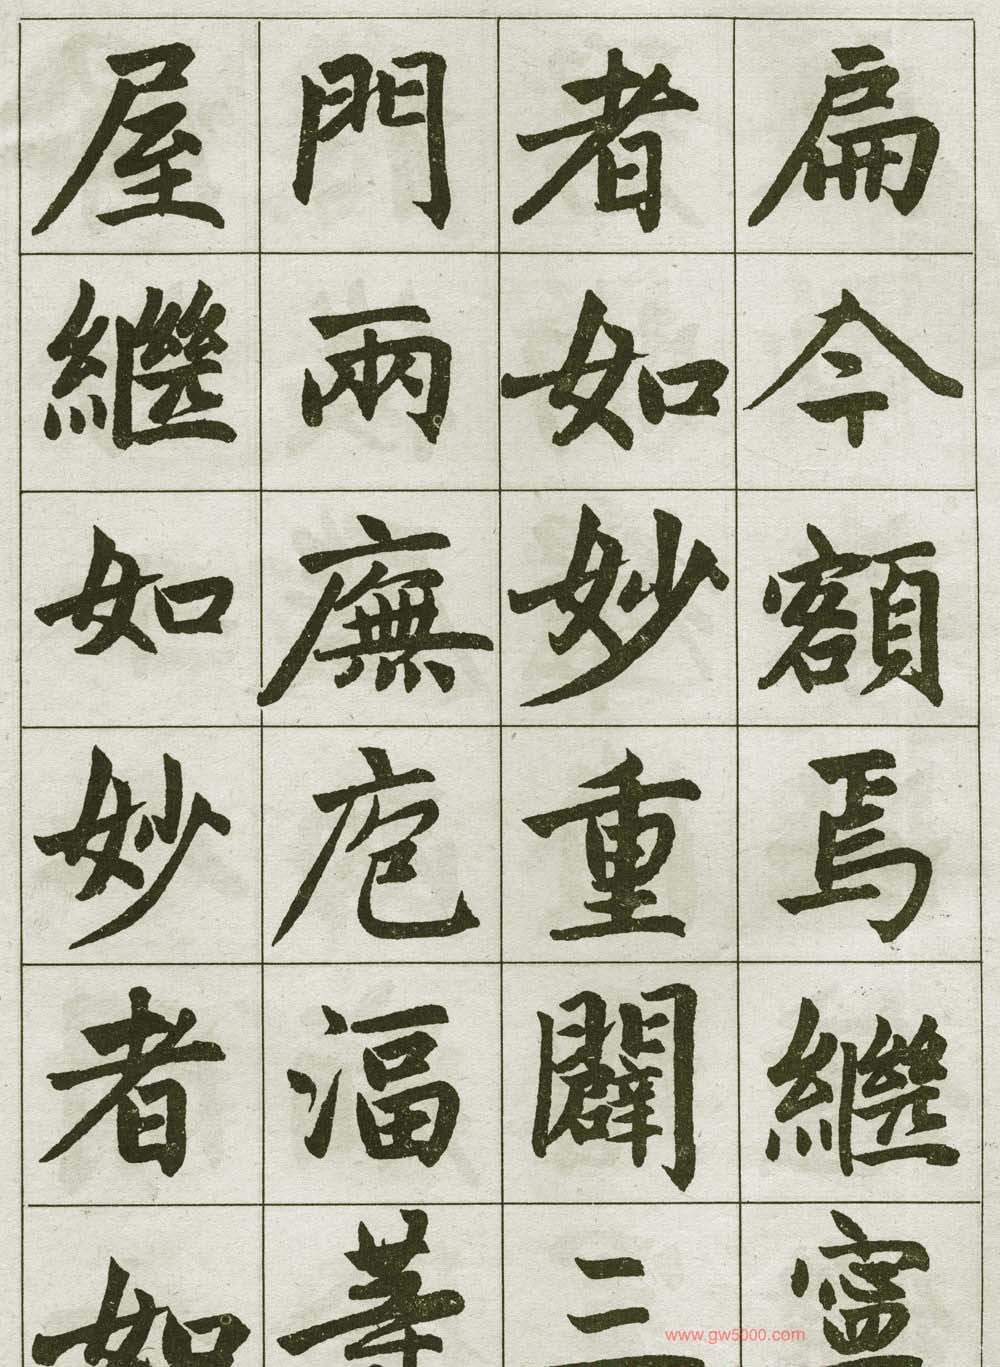 扁今額焉繼寧
者如妙重闢三
門兩廡庖湢等
屋繼如妙者如
www.gw5000.com